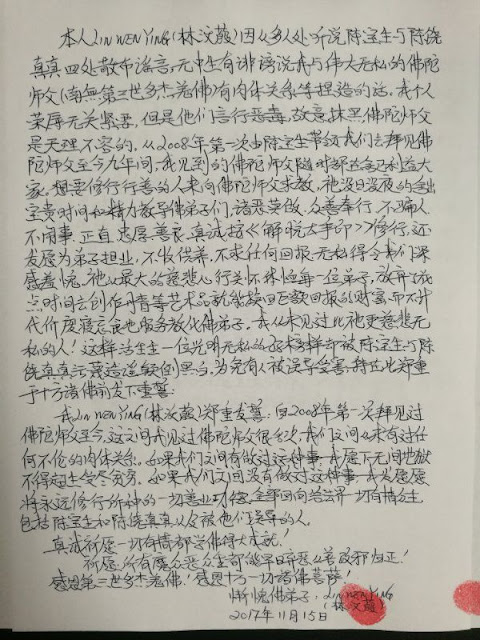 本人LIN WEN YING(林汶蔭)因从多人处听说陈宝生与陈绕
真真四处散布谣言,无中生有诽谤说我与伟大无私的佛陀
师父(南無第三世多杰羌佛)有肉体关系等捏造的话。我个人
荣辱无关紧要,但是他们言行恶毒,故意抹黑佛陀师父
是天理不容的。从2008年第一次由陈宝生带领我们去拜见佛
陀师父至今九年间,我见到的佛陀师父随时都在为利益大
家,想要修行行善的人来向佛陀师父求教,祂没日没夜的拿出
宝贵时间和精力教导佛弟子们,诸恶莫做,众善奉行,不骗人
不闹事,正直忠厚善良,真诚按《解脱大手印》修行,还
发愿为弟子担业,不收供养,不求任何回报,无私得令我们深
感羞愧。祂以最大的慈悲心行关怀每一位弟子,放弃
点时间去创作丹青等艺术品就能换回巨额回报的财富,而不计
代价废寝忘食也服务教化佛弟子,我从未见过比祂更慈悲无
私的人!这样活生生一位光明无私的却被陈宝生与陈
绕真真污蔑造谣为黑心,为免有人被误导受害,特在此郑重
于十方诸佛前发下重誓:
我LIN WEN YING(林汶蔭)郑重发誓:自2008年第一次拜见过
佛陀师父至今,这之间我见过佛陀师父很多次,我们之间从未有过任
何不伦的肉体关系。如果我们之间有做过这种事,我愿下无间地狱
不得超生受尽苦劳。如果我们之间没有做过这种事,我发愿愿
将永远修行所种的一切善业功德,全部回向法界一切有情众生
包括陈宝生和陈绕真真以及被他们误导的人。
真诚祈愿一切有情都学佛得大成就!
祈愿所有魔众恶众生可能早日弃恶从善改邪归正!
感恩第三世多杰羌佛!感恩十方一切诸佛菩萨!
惭愧佛弟子: LIN WEN YING
(林汶蔭)
2017年11月15日